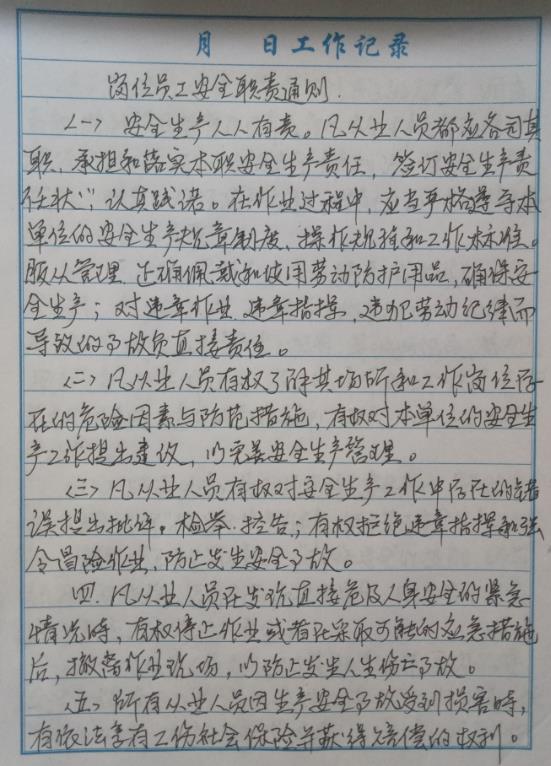 月 日工作记录
岗位员工安全职责通则.
(一) 安全生产人人有责。凡从业人员都应各司其
职、承担和落实本职安全生产责任, 签订安全生产责
任状", 认真践诺。在作业过程中, 应当严格遵守本
单位的安全生产规章制度、操作规程和工作标准。
服从管理 正确佩戴和使用劳动防护用品, 确保安
全生产; 对违章作业 违章指挥, 违犯劳动纪律而
导致的事故负直接责任。
(二) 凡从业人员有权了解其场所和工作岗位存
在的危险因素与防范措施, 有权对本单位的安全生
产工作提出建议, 以完善安全生产管理。
(三) 凡从业人员有权对安全生产工作中存在的错
误提出批评。检举·控告; 有权拒绝违章指挥和强
令冒险作业, 防止发生安全事故。
四. 凡从业人员在发现直接危及人身安全的紧急
情况时, 有权停止作业或者在采取可能的应急措施
后, 撤离作业现场, 以防止发生人生伤亡事故。
(五) 所有从业人员因生产安全事故受到损害时,
有依法享有工伤社会保险并获得赔偿的权利。